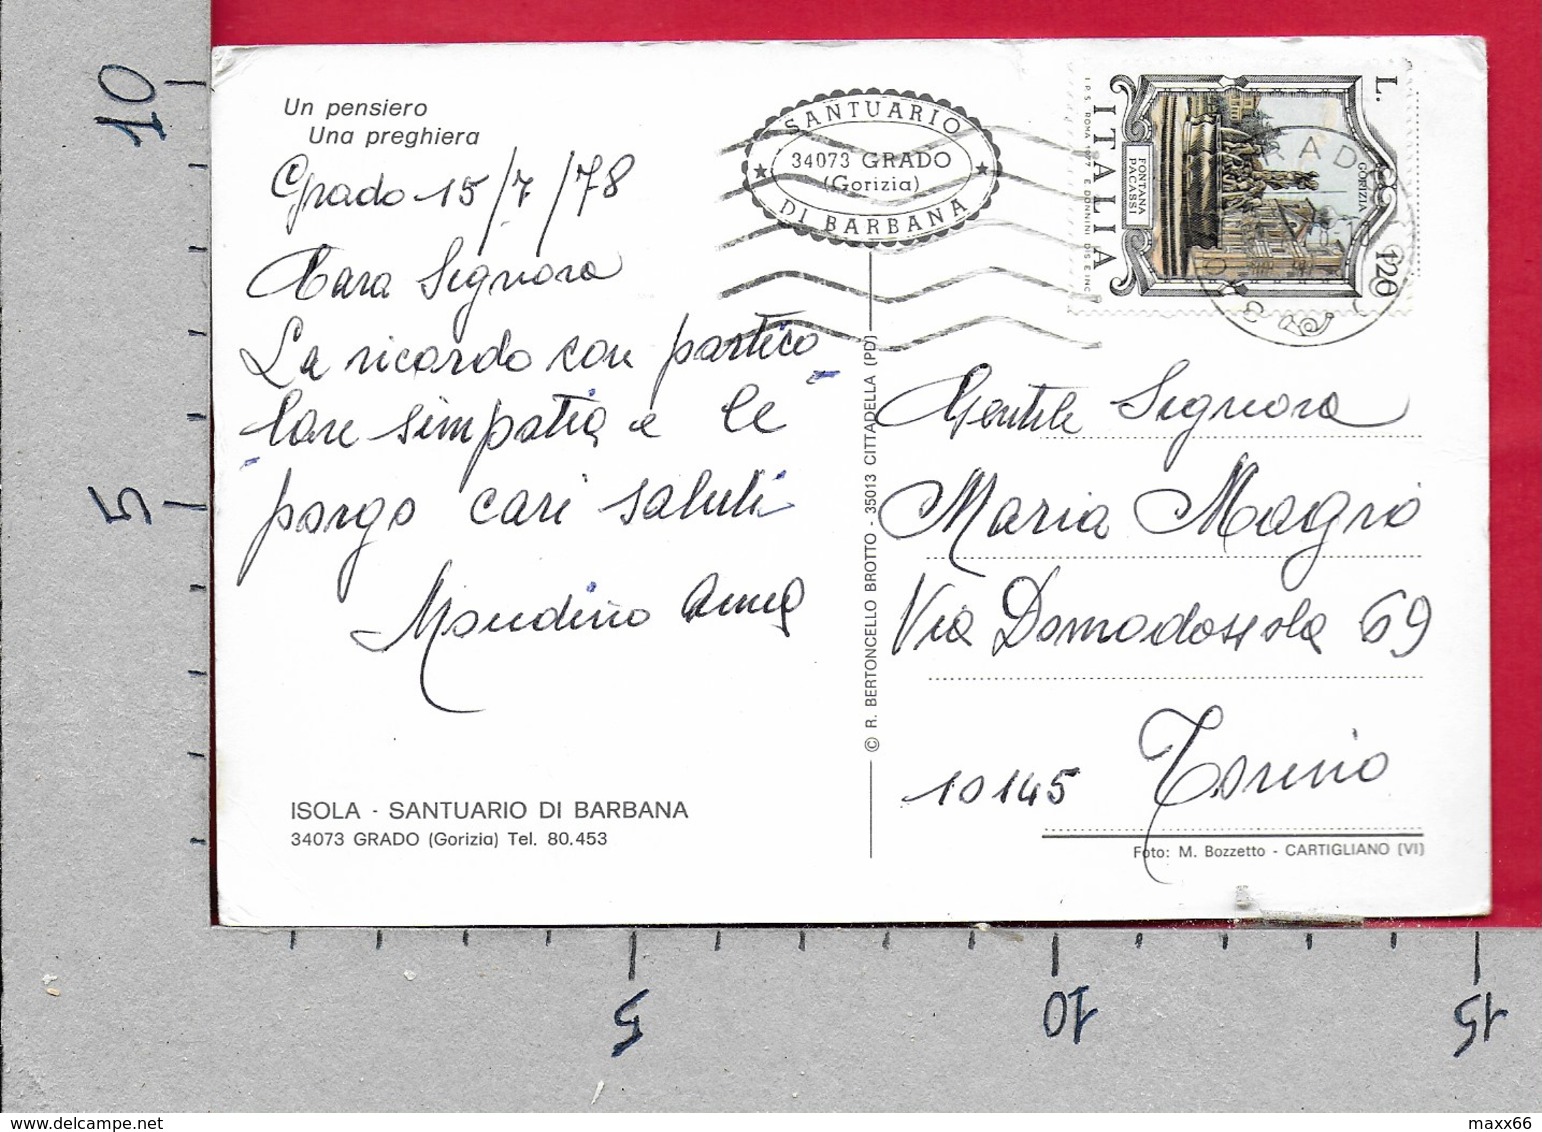 10
5
5
10
15
Un pensiero
Una preghiera
Grado 15/7/78
Cara Signora
La ricordo con partico
lare simpatia e le
porgo cari saluti
Mondino Anna
ISOLA - SANTUARIO DI BARBANA
34073 GRADO (Gorizia) Tel. 80.453
SANTUARIO
34073 GRADO
(Gorizia)
DI BARBANA
© R. BERTONCELLO BROTTO - 35013 CITTADELLA (PD)
L. 120
GORIZIA
FONTANA
PACASSI
ITALIA
I.P.S. ROMA 1977 E. DONNINI DIS. E INC.
Gentile Signora
Maria Magrò
Via Domodossola 69
10145 Torino
Foto: M. Bozzetto - CARTIGLIANO (VI)
www.delcampe.net
maxx66